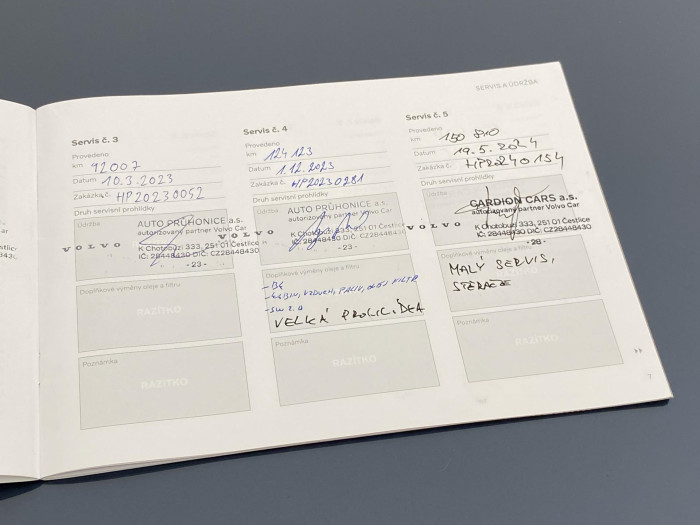 SERVIS A ÚDRŽBA
Servis č. 3
Provedeno
km 92007
Datum 10.3.2023
Zakázka č. HP20230052
Druh servisní prohlídky
Údržba
AUTO PRŮHONICE a.s.
autorizovaný partner Volvo Car
VOLVO
K Chotobuzi 333, 251 01 Čestlice
IČ: 28448430 DIČ: CZ28448430
- 23 -
Doplňkové výměny oleje a filtru
RAZÍTKO
Poznámka
RAZÍTKO
Servis č. 4
Provedeno
km 124 123
Datum 1.12.2023
Zakázka č. HP20230281
Druh servisní prohlídky
Údržba
AUTO PRŮHONICE a.s.
autorizovaný partner Volvo Car
VOLVO
K Chotobuzi 333, 251 01 Čestlice
IČ: 28448430 DIČ: CZ28448430
- 23 -
Doplňkové výměny oleje a filtru
VELKÁ
Poznámka
RAZÍTKO
Servis č. 5
Provedeno
km 150 810
Datum 19.5.2024
Zakázka č. HP20240154
Druh servisní prohlídky
Údržba
CARDION CARS a.s.
autorizovaný partner Volvo Car
VOLVO
K Chotobuzi 333, 251 01 Čestlice
IČ: 28448430 DIČ: CZ28448430
- 28 -
Doplňkové výměny oleje a filtru
MALÝ SERVIS,
STĚRAČE
Poznámka
RAZÍTKO
7